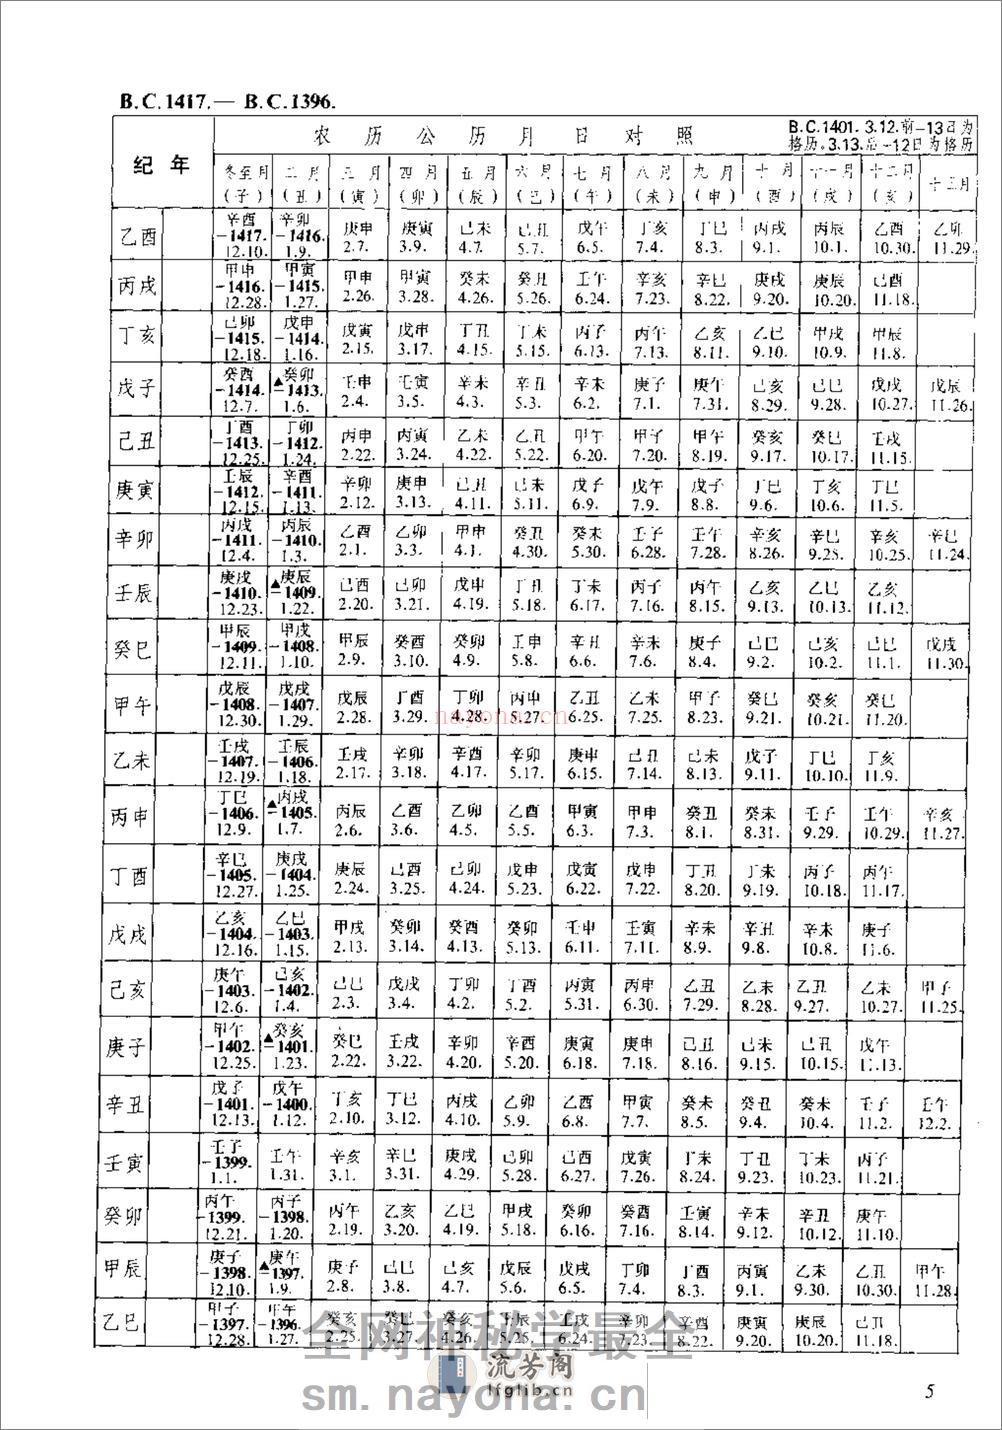 B.C.1417.— B.C.1396.
纪 年 农 历 公 历 月 日 对 照 B.C.1401. 3.12.前-13日为
格历.3.13.后-12日为格历
冬至月 二月 三月 四月 五月 六月 七月 八月 九月 十月 十一月 十二月 十三月
(子) (丑) (寅) (卯) (辰) (巳) (午) (未) (申) (酉) (戌) (亥)
乙酉 辛酉 辛卯 庚申 庚寅 己未 己丑 戊午 丁亥 丁巳 丙戌 丙辰 乙酉 乙卯
-1417. -1416.
12.10. 1.9. 2.7. 3.9. 4.7. 5.7. 6.5. 7.4. 8.3. 9.1. 10.1. 10.30. 11.29.
丙戌 甲申 甲寅 甲申 甲寅 癸未 癸丑 壬午 辛亥 辛巳 庚戌 庚辰 己酉
-1416. -1415.
12.28. 1.27. 2.26. 3.28. 4.26. 5.26. 6.24. 7.23. 8.22. 9.20. 10.20. 11.18.
丁亥 己卯 戊申 戊寅 戊申 丁丑 丁未 丙子 丙午 乙亥 乙巳 甲戌 甲辰
-1415. -1414.
12.18. 1.16. 2.15. 3.17. 4.15. 5.15. 6.13. 7.13. 8.11. 9.10. 10.9. 11.8.
戊子 癸酉 ▲癸卯 壬申 壬寅 辛未 辛丑 辛未 庚子 庚午 己亥 己巳 戊戌 戊辰
-1414. -1413.
12.7. 1.6. 2.4. 3.5. 4.3. 5.3. 6.2. 7.1. 7.31. 8.29. 9.28. 10.27. 11.26.
己丑 丁酉 丁卯 丙申 丙寅 乙未 乙丑 甲午 甲子 甲午 癸亥 癸巳 壬戌
-1413. -1412.
12.25. 1.24. 2.22. 3.24. 4.22. 5.22. 6.20. 7.20. 8.19. 9.17. 10.17. 11.15.
庚寅 壬辰 辛酉 辛卯 庚申 己丑 己未 戊子 戊午 戊子 丁巳 丁亥 丁巳
-1412. -1411.
12.15. 1.13. 2.12. 3.13. 4.11. 5.11. 6.9. 7.9. 8.8. 9.6. 10.6. 11.5.
辛卯 丙戌 丙辰 乙酉 乙卯 甲申 癸丑 癸未 壬子 壬午 辛亥 辛巳 辛亥 辛巳
-1411. -1410.
12.4. 1.3. 2.1. 3.3. 4.1. 4.30. 5.30. 6.28. 7.28. 8.26. 9.25. 10.25. 11.24.
壬辰 庚戌 ▲庚辰 己酉 己卯 戊申 丁丑 丁未 丙子 丙午 乙亥 乙巳 乙亥
-1410. -1409.
12.23. 1.22. 2.20. 3.21. 4.19. 5.18. 6.17. 7.16. 8.15. 9.13. 10.13. 11.12.
癸巳 甲辰 甲戌 甲辰 癸酉 癸卯 壬申 辛丑 辛未 庚子 己巳 己亥 己巳 戊戌
-1409. -1408.
12.11. 1.10. 2.9. 3.10. 4.9. 5.8. 6.6. 7.6. 8.4. 9.2. 10.2. 11.1. 11.30.
甲午 戊辰 戊戌 戊辰 丁酉 丁卯 丙申 乙丑 乙未 甲子 癸巳 癸亥 癸巳
-1408. -1407.
12.30. 1.29. 2.28. 3.29. 4.28. 5.27. 6.25. 7.25. 8.23. 9.21. 10.21. 11.20.
乙未 壬戌 壬辰 壬戌 辛卯 辛酉 辛卯 庚申 己丑 己未 戊子 丁巳 丁亥
-1407. -1406.
12.19. 1.18. 2.17. 3.18. 4.17. 5.17. 6.15. 7.14. 8.13. 9.11. 10.10. 11.9.
丙申 丁巳 ▲丙戌 丙辰 乙酉 乙卯 乙酉 甲寅 甲申 癸丑 癸未 壬子 壬午 辛亥
-1406. -1405.
12.9. 1.7. 2.6. 3.6. 4.5. 5.5. 6.3. 7.3. 8.1. 8.31. 9.29. 10.29. 11.27.
丁酉 辛巳 庚戌 庚辰 己酉 己卯 戊申 戊寅 戊申 丁丑 丁未 丙子 丙午
-1405. -1404.
12.27. 1.25. 2.24. 3.25. 4.24. 5.23. 6.22. 7.22. 8.20. 9.19. 10.18. 11.17.
戊戌 乙亥 乙巳 甲戌 癸卯 癸酉 癸卯 壬申 壬寅 辛未 辛丑 辛未 庚子
-1404. -1403.
12.16. 1.15. 2.13. 3.14. 4.13. 5.13. 6.11. 7.11. 8.9. 9.8. 10.8. 11.6.
己亥 庚午 己亥 己巳 戊戌 丁卯 丁酉 丙寅 丙申 乙丑 乙未 乙丑 乙未 甲子
-1403. -1402.
12.6. 1.4. 2.3. 3.4. 4.2. 5.2. 5.31. 6.30. 7.29. 8.28. 9.27. 10.27. 11.25.
庚子 甲午 ▲癸亥 癸巳 壬戌 辛卯 辛酉 庚寅 庚申 己丑 己未 己丑 戊午
-1402. -1401.
12.25. 1.23. 2.22. 3.22. 4.20. 5.20. 6.18. 7.18. 8.16. 9.15. 10.15. 11.13.
辛丑 戊子 戊午 丁亥 丁巳 丙戌 乙卯 乙酉 甲寅 癸未 癸丑 癸未 壬子 壬午
-1401. -1400.
12.13. 1.12. 2.10. 3.12. 4.10. 5.9. 6.8. 7.7. 8.5. 9.4. 10.4. 11.2. 12.2.
壬寅 壬子 壬午 辛亥 辛巳 庚戌 己卯 己酉 戊寅 丁未 丁丑 丁未 丙子
-1399.
1.1. 1.31. 3.1. 3.31. 4.29. 5.28. 6.27. 7.26. 8.24. 9.23. 10.23. 11.21.
癸卯 丙午 丙子 丙午 乙亥 乙巳 甲戌 癸卯 癸酉 壬寅 辛未 辛丑 庚午
-1399. -1398.
12.21. 1.20. 2.19. 3.20. 4.19. 5.18. 6.16. 7.16. 8.14. 9.12. 10.12. 11.10.
甲辰 庚子 ▲庚午 庚子 己巳 己亥 戊辰 戊戌 丁卯 丁酉 丙寅 乙未 乙丑 甲午
-1398. -1397.
12.10. 1.9. 2.8. 3.8. 4.7. 5.6. 6.5. 7.4. 8.3. 9.1. 9.30. 10.30. 11.28.
乙巳 甲子 甲午 癸亥 癸巳 癸亥 壬辰 壬戌 辛卯 辛酉 庚寅 庚辰 己丑
-1397. -1396.
12.28. 1.27. 2.25. 3.27. 4.26. 5.25. 6.24. 7.23. 8.22. 9.20. 10.20. 11.18.
nayona.cn
全网神秘学最全
流芳阁
lfglib.cn
sm.nayona.cn
5